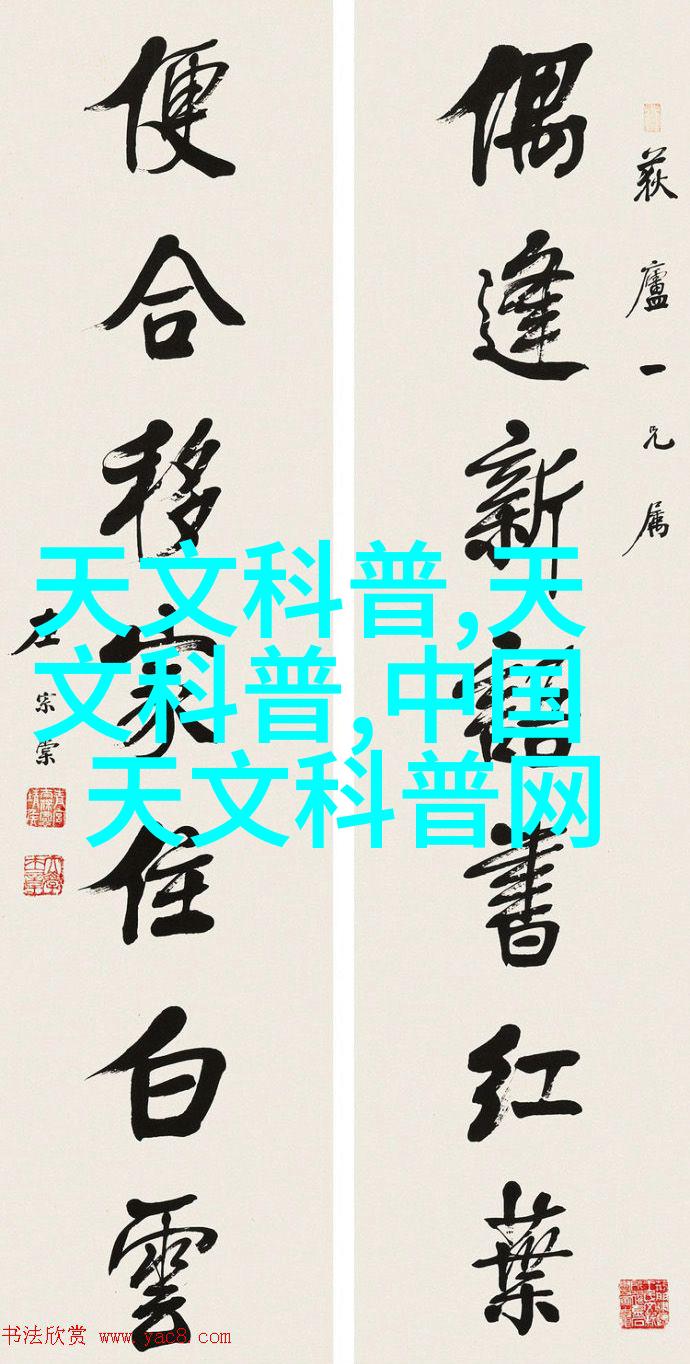 荻廬一兄属
偶逢新語書红葉
便合移家住白雲
左宗棠
天文科普,天
文科普,中国
天文科普网
书法欣赏 www.yac8.com